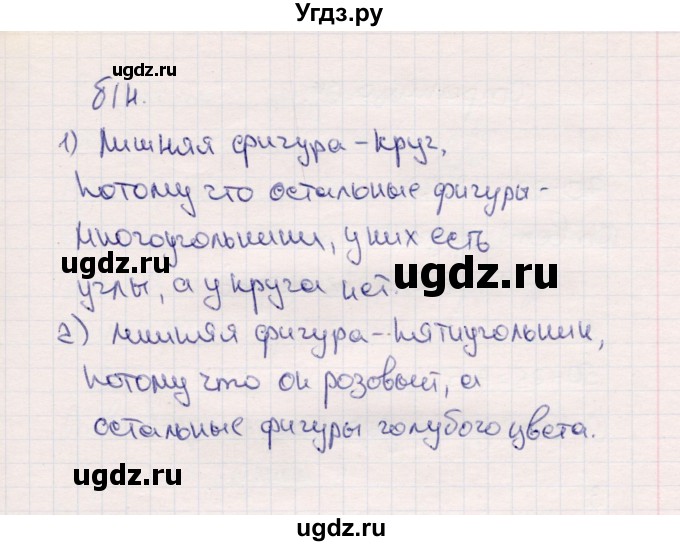 Угдз.ру
ugdz.ru
б/н.
ugdz.ru
1) Лишняя фигура - круг,
потому что остальные фигуры -
многоугольники, у них есть
ugdz.ru
ugdz.ru
углы, а у круга нет.
2) Лишняя фигура - пятиугольник,
потому что он розовый, а
остальные фигуры голубого цвета.
ugdz.ru
ugdz.ru